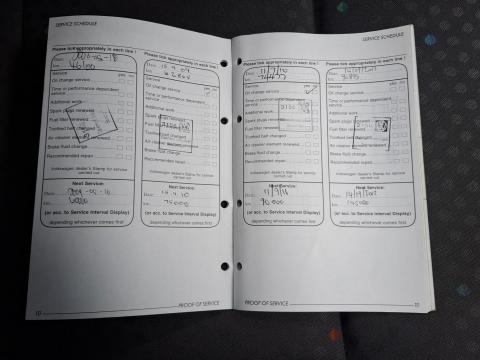 SERVICE SCHEDULE
Please tick appropriately in each line !
Date:
km:
Service yes no
Oil change service
Time or performance dependent service
Additional work
Spark plugs renewed
Fuel filter renewed
Toothed belt changed
Air cleaner element renewed
Brake fluid change
Recommended repair
Volkswagen dealer's Stamp for service
carried out
Next Service:
Date:
km:
(or acc. to Service Interval Display)
depending whichever comes first
Please tick appropriately in each line !
Date:
km:
Service yes no
Oil change service
Time or performance dependent
service
Additional work
Spark plugs renewed
Fuel filter renewed
Toothed belt changed
Air cleaner element renewed
Brake fluid change
Recommended repair
Volkswagen dealer's Stamp for service
carried out
Next Service:
Date:
km: 75000
(or acc. to Service Interval Display)
depending whichever comes first
10
PROOF OF SERVICE
SERVICE SCHEDULE
Please tick appropriately in each line !
Date: 11/9/10
km: 74477
Service yes no
Oil change service
Time or performance dependent
service
Additional work
Spark plugs renewed
Fuel filter renewed
Toothed belt changed
Air cleaner element renewed
Brake fluid change
Recommended repair
Volkswagen dealer's Stamp for service
carried out
Next Service:
Date: 11/9/11
km: 90000
(or acc. to Service Interval Display)
depending whichever comes first
Please tick appropriately in each line !
Date:
km:
Service yes no
Oil change service
Time or performance dependent
service
Additional work
Spark plugs renewed
Fuel filter renewed
Toothed belt changed
Air cleaner element renewed
Brake fluid change
Recommended repair
Volkswagen dealer's Stamp for service
carried out
Next Service:
Date:
km:
(or acc. to Service Interval Display)
depending whichever comes first
PROOF OF SERVICE
11